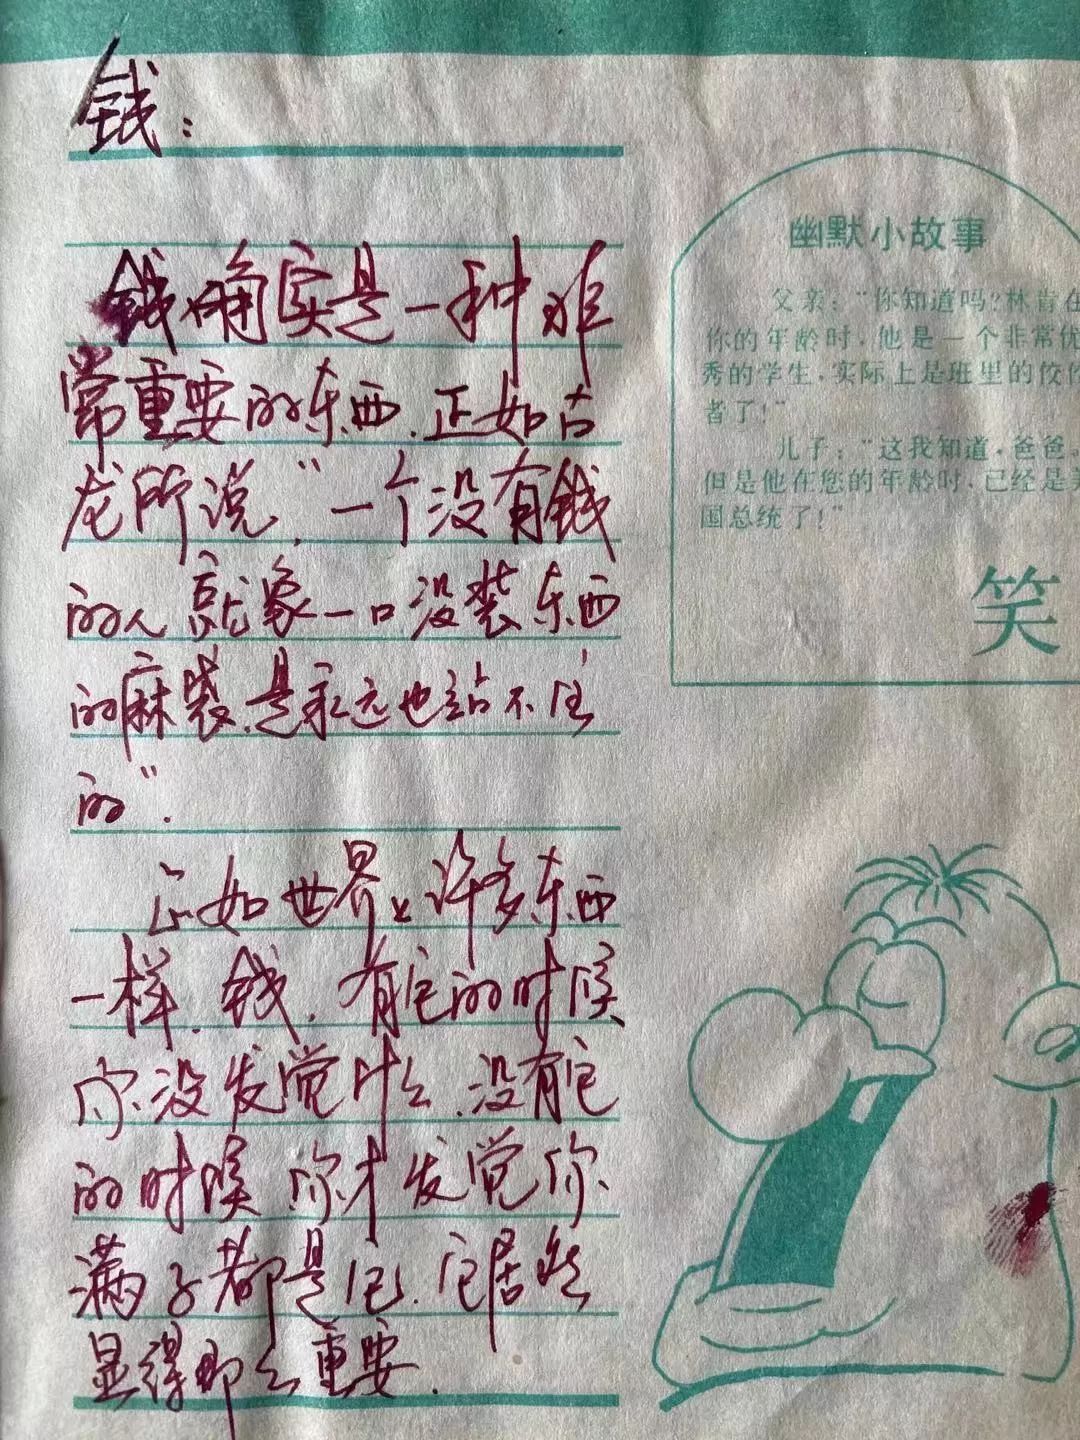 钱：
钱确实是一种非
常重要的东西.正如古
龙所说,"一个没有钱
的人就象一口没装东西
的麻袋,是永远也站不住
的".
正如世界上许多东西
一样.钱.有它的时候
你没发觉什么.没有它
的时候.你才发觉你
满子都是它.它居然
显得那么重要.
幽默小故事
父亲："你知道吗?林肯在
你的年龄时,他是一个非常优
秀的学生,实际上是班里的佼佼
者了!"
儿子："这我知道,爸爸。
但是他在您的年龄时,已经是美
国总统了!"
笑